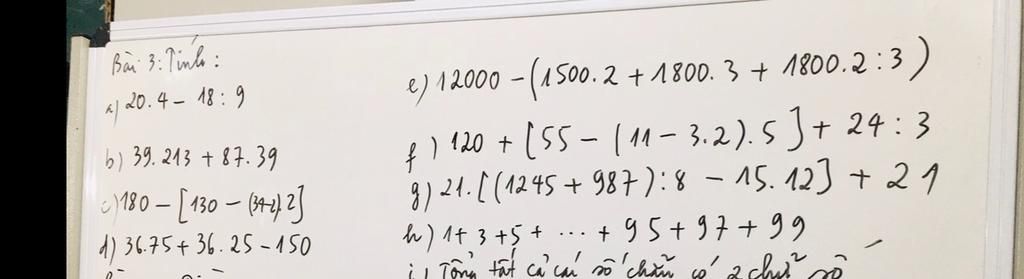 Bài 3: Tính:
a) 20.4 - 18 : 9
b) 39.213 + 87.39
c) 180 - [130 - (34-2).2]
d) 36.75 + 36.25 - 150
e) 12000 - (1500.2 + 1800.3 + 1800.2:3)
f) 120 + [55 - (11 - 3.2).5] + 24 : 3
g) 21.[(1245 + 987):8 - 15.12] + 21
h) 1 + 3 + 5 + ... + 95 + 97 + 99
i) Tổng tất cả các số chẵn có 2 chữ số